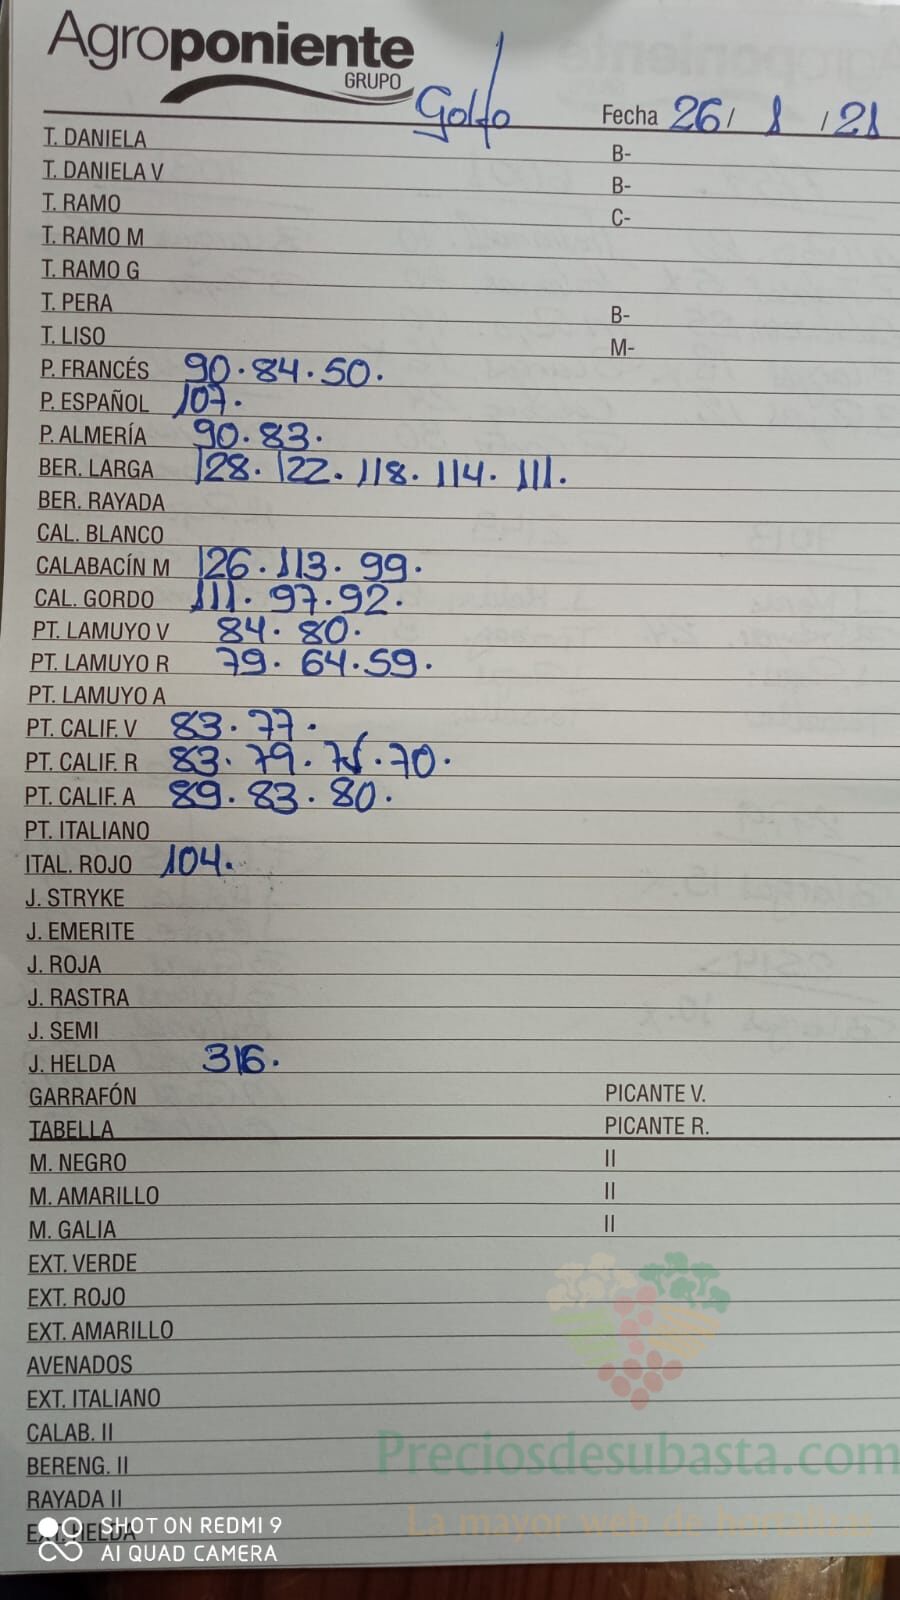 Agroponiente
GRUPO
Golfo
Fecha 26 / 1 / 21
T. DANIELA B-
T. DANIELA V B-
T. RAMO C-
T. RAMO M
T. RAMO G
T. PERA B-
T. LISO M-
P. FRANCÉS 90. 84. 50.
P. ESPAÑOL 107.
P. ALMERÍA 90. 83.
BER. LARGA 128. 122. 118. 114. 111.
BER. RAYADA
CAL. BLANCO
CALABACÍN M 126. 113. 99.
CAL. GORDO 111. 97. 92.
PT. LAMUYO V 84. 80.
PT. LAMUYO R 79. 64. 59.
PT. LAMUYO A
PT. CALIF. V 83. 77.
PT. CALIF. R 83. 79. 75. 70.
PT. CALIF. A 89. 83. 80.
PT. ITALIANO
ITAL. ROJO 104.
J. STRYKE
J. EMERITE
J. ROJA
J. RASTRA
J. SEMI
J. HELDA 316.
GARRAFÓN PICANTE V.
TABELLA PICANTE R.
M. NEGRO II
M. AMARILLO II
M. GALIA II
EXT. VERDE
EXT. ROJO
EXT. AMARILLO
AVENADOS
EXT. ITALIANO
CALAB. II
Preciosdesubasta.com
BERENG. II
RAYADA II
La mayor web de hortalizas
EXT. HELDA
SHOT ON REDMI 9
AI QUAD CAMERA